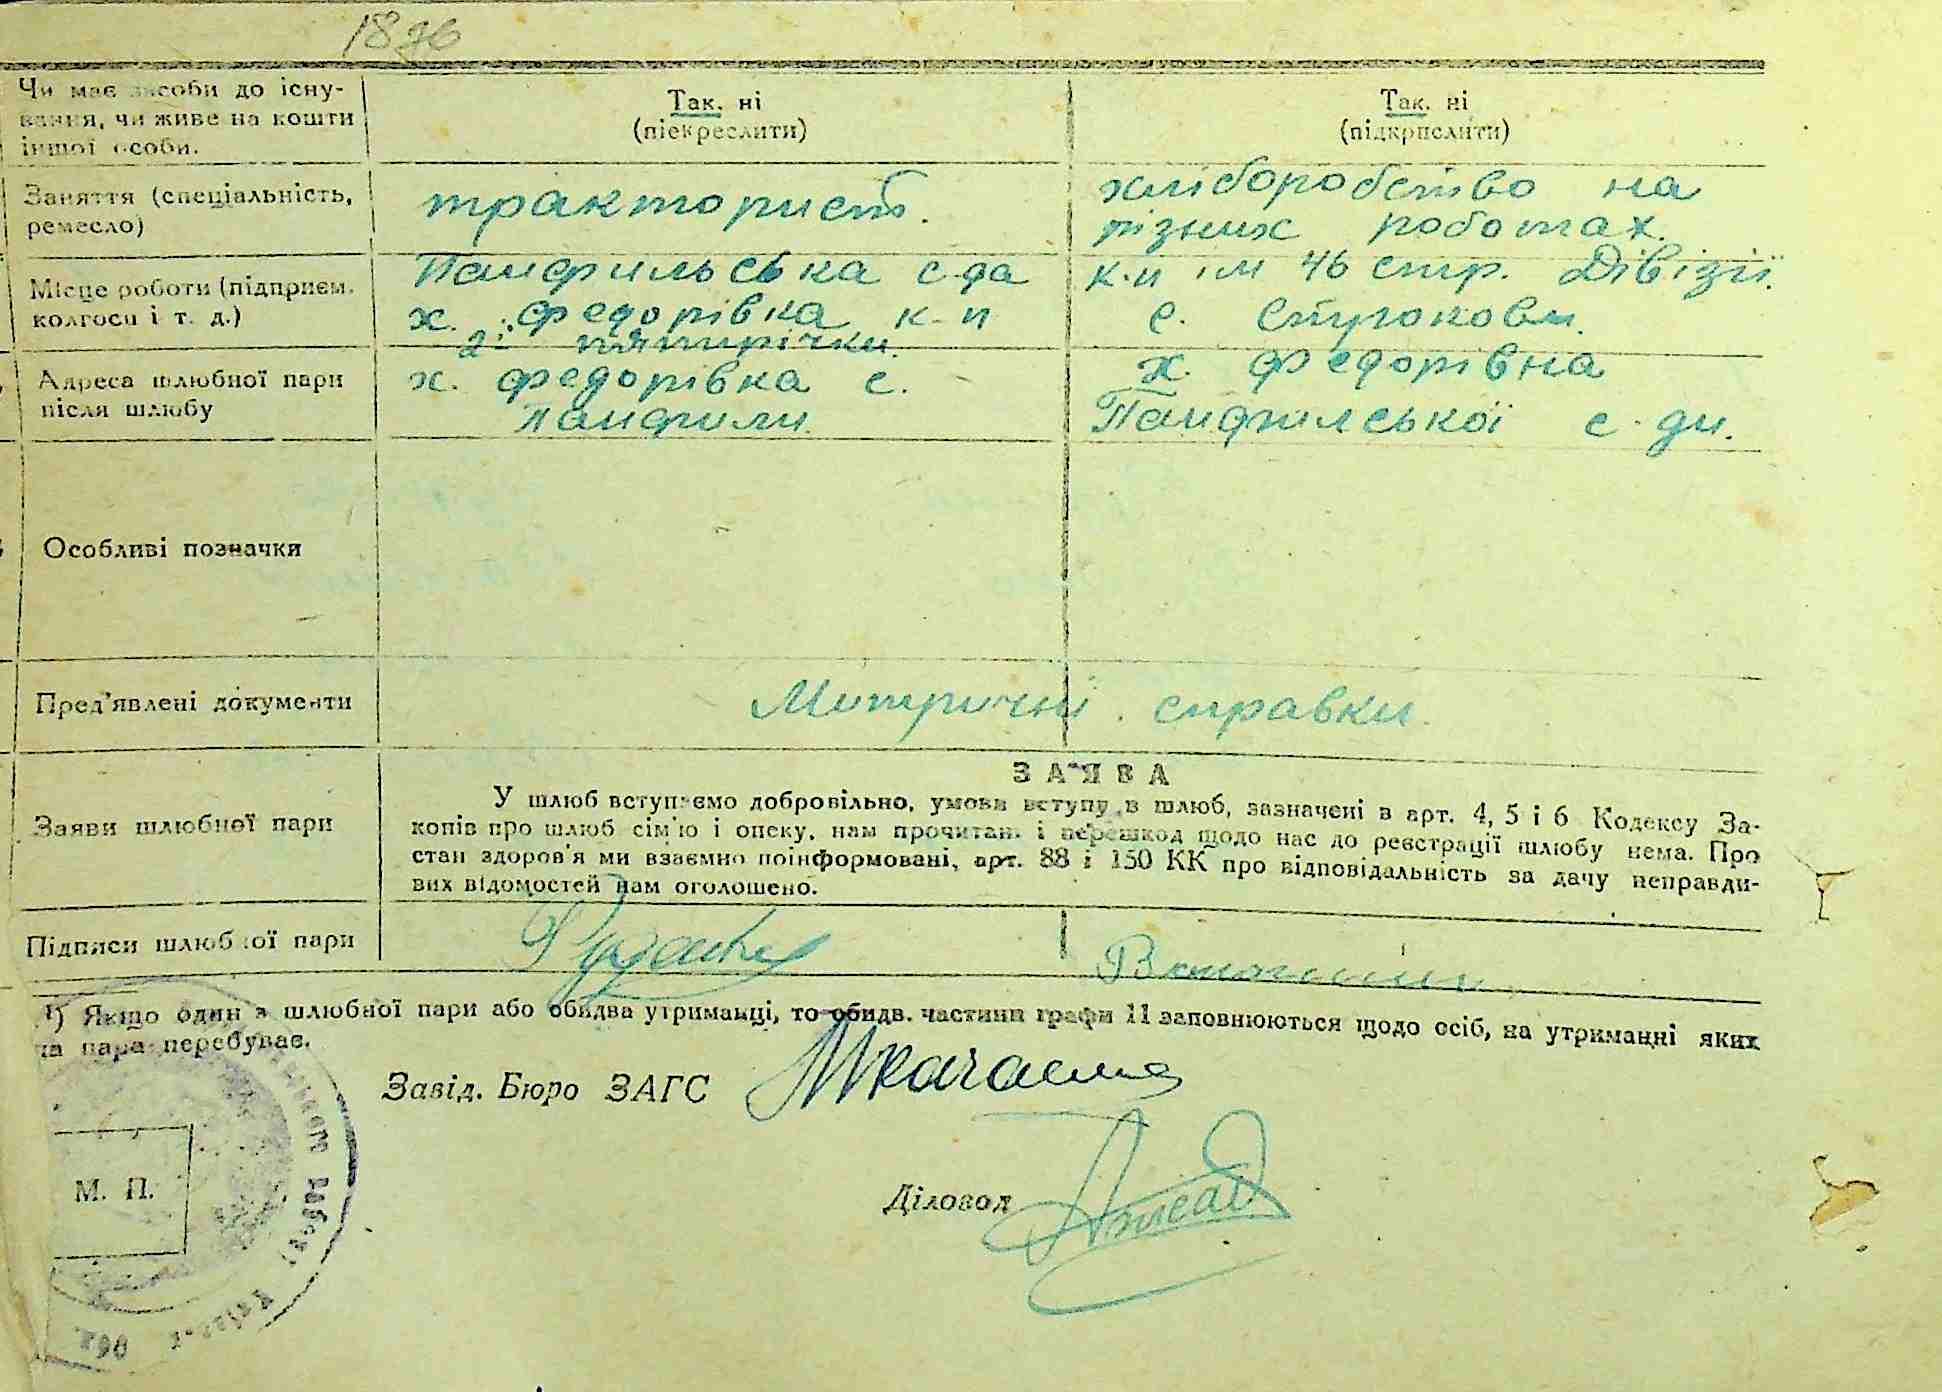 1876
Чи має засоби до існу-
вання, чи живе на кошти
іншої особи.
Так. ні
(піекреслити)
Так. ні
(підкрислити)
Заняття (спеціальність,
ремесло)
тракторист.
хліборобство на
різних роботах.
Місце роботи (підприєм.
колгосп і т. д.)
Панфильська с-да
х. Федорівка к-п
2ї пятирічки.
к-п ім 46 стр. Дівізії.
с.
Адреса шлюбної пари
після шлюбу
х. Федорівка с.
Панфили.
х. Федорівна
Панфилської с-ди.
Особливі позначки
Пред'явлені документи
Метричні справки.
Заяви шлюбної пари
ЗАЯВА
У шлюб вступаємо добровільно, умови вступу в шлюб, зазначені в арт. 4, 5 і 6 Кодексу За-
копів про шлюб сім'ю і опеку, нам прочитані і перешкод щодо нас до реєстрації шлюбу нема. Про
стан здоров'я ми взаємно поінформовані, арт. 88 і 150 КК про відповідальність за дачу неправди-
вих відомостей нам оголошено.
Підписи шлюбної пари
¹) Якщо один з шлюбної пари або обидва утриманці, то обидв. частини графи 11 заповнюються щодо осіб, на утриманні яких
ця пара перебуває.
Завід. Бюро ЗАГС
М. П.
Діловод